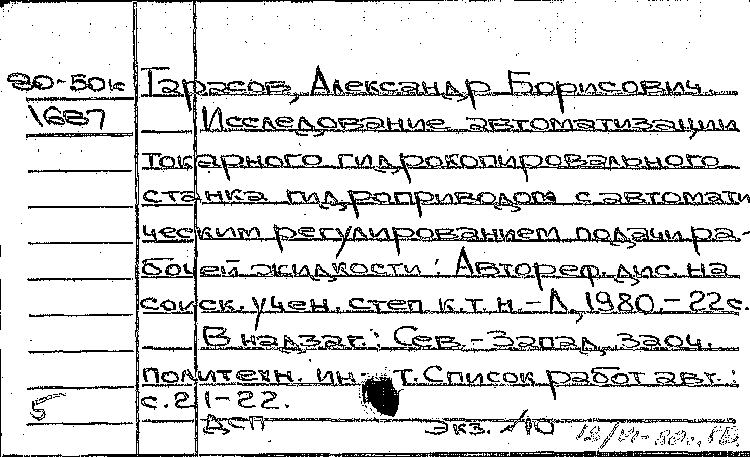 80-50к Тарасов, Александр Борисович.
1687 Исследование автоматизации
токарного гидрокопировального
станка гидроприводом с автомати
ческим регулированием подачи ра-
бочей жидкости : Автореф. дис. на
соиск. учен. степ к.т.н. - Л, 1980. - 22 с.
В надзаг.: Сев. - Запад, заоч.
политехн. ин- т. Список работ авт.:
5 с. 21-22.
ДСП экз. №10